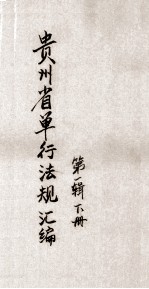 贵州省单行法规汇编
第一辑下册